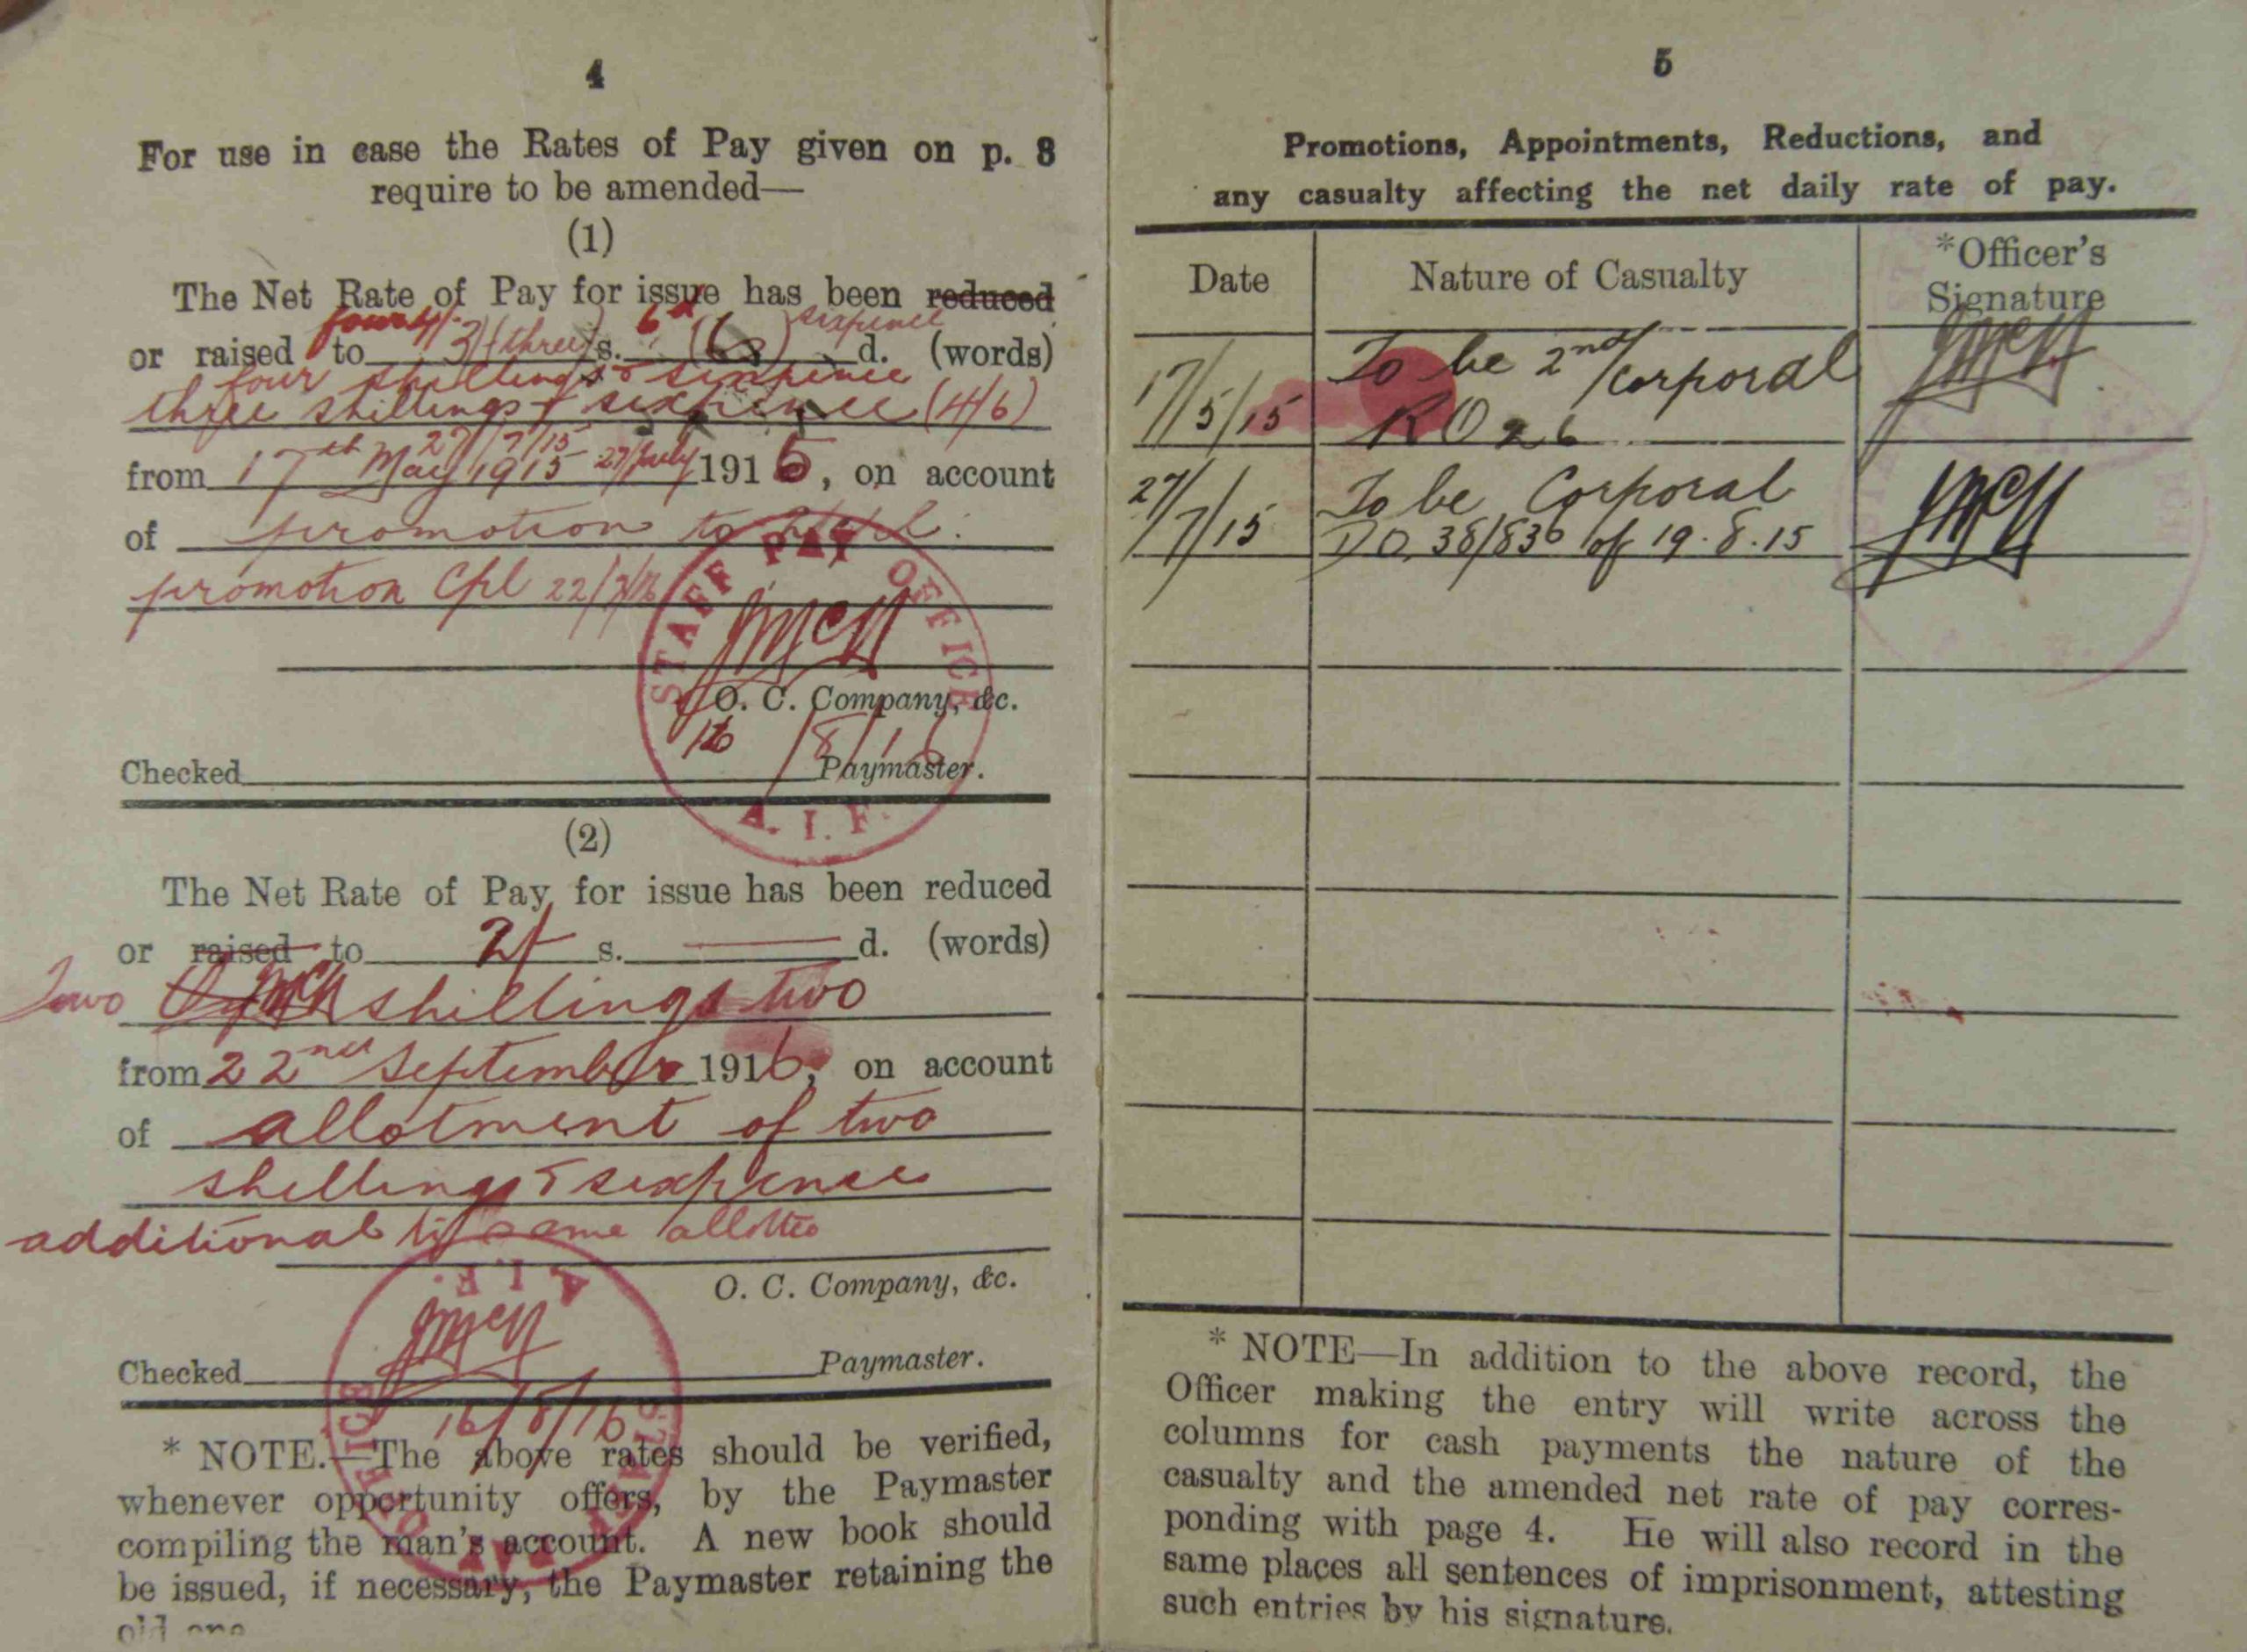 4
For use in case the Rates of Pay given on p. 3
require to be amended—
(1)
The Net Rate of Pay for issue has been reduced
four 4/- 6d sixpence
or raised to 3/ (three) s. (6) d. (words)
four shillings & sixpence
three shillings & sixpence (4/6)
27/7/15
from 17th May 1915 27/July 1915, on account
of promotion to
promotion Cpl 22/7/
STAFF PAY OFFICE
O. C. Company, &c.
16/8/16
Checked Paymaster.
A. I. F.
(2)
The Net Rate of Pay for issue has been reduced
or raised to 2/- s. d. (words)
Two shillings two
from 22nd September 1916, on account
of allotment of two
shillings & sixpence
additional to same allottee
A. I. F.
O. C. Company, &c.
Checked Paymaster.
16/8/16
STAFF PAY OFFICE
* NOTE.—The above rates should be verified,
whenever opportunity offers, by the Paymaster
compiling the man's account. A new book should
be issued, if necessary, the Paymaster retaining the
old one
5
Promotions, Appointments, Reductions, and
any casualty affecting the net daily rate of pay.
Date Nature of Casualty *Officer's Signature
17/5/15 To be 2nd/Corporal
RO 26
27/7/15 To be Corporal
DO 38/836 of 19.8.15
* NOTE—In addition to the above record, the
Officer making the entry will write across the
columns for cash payments the nature of the
casualty and the amended net rate of pay corres-
ponding with page 4. He will also record in the
same places all sentences of imprisonment, attesting
such entries by his signature.